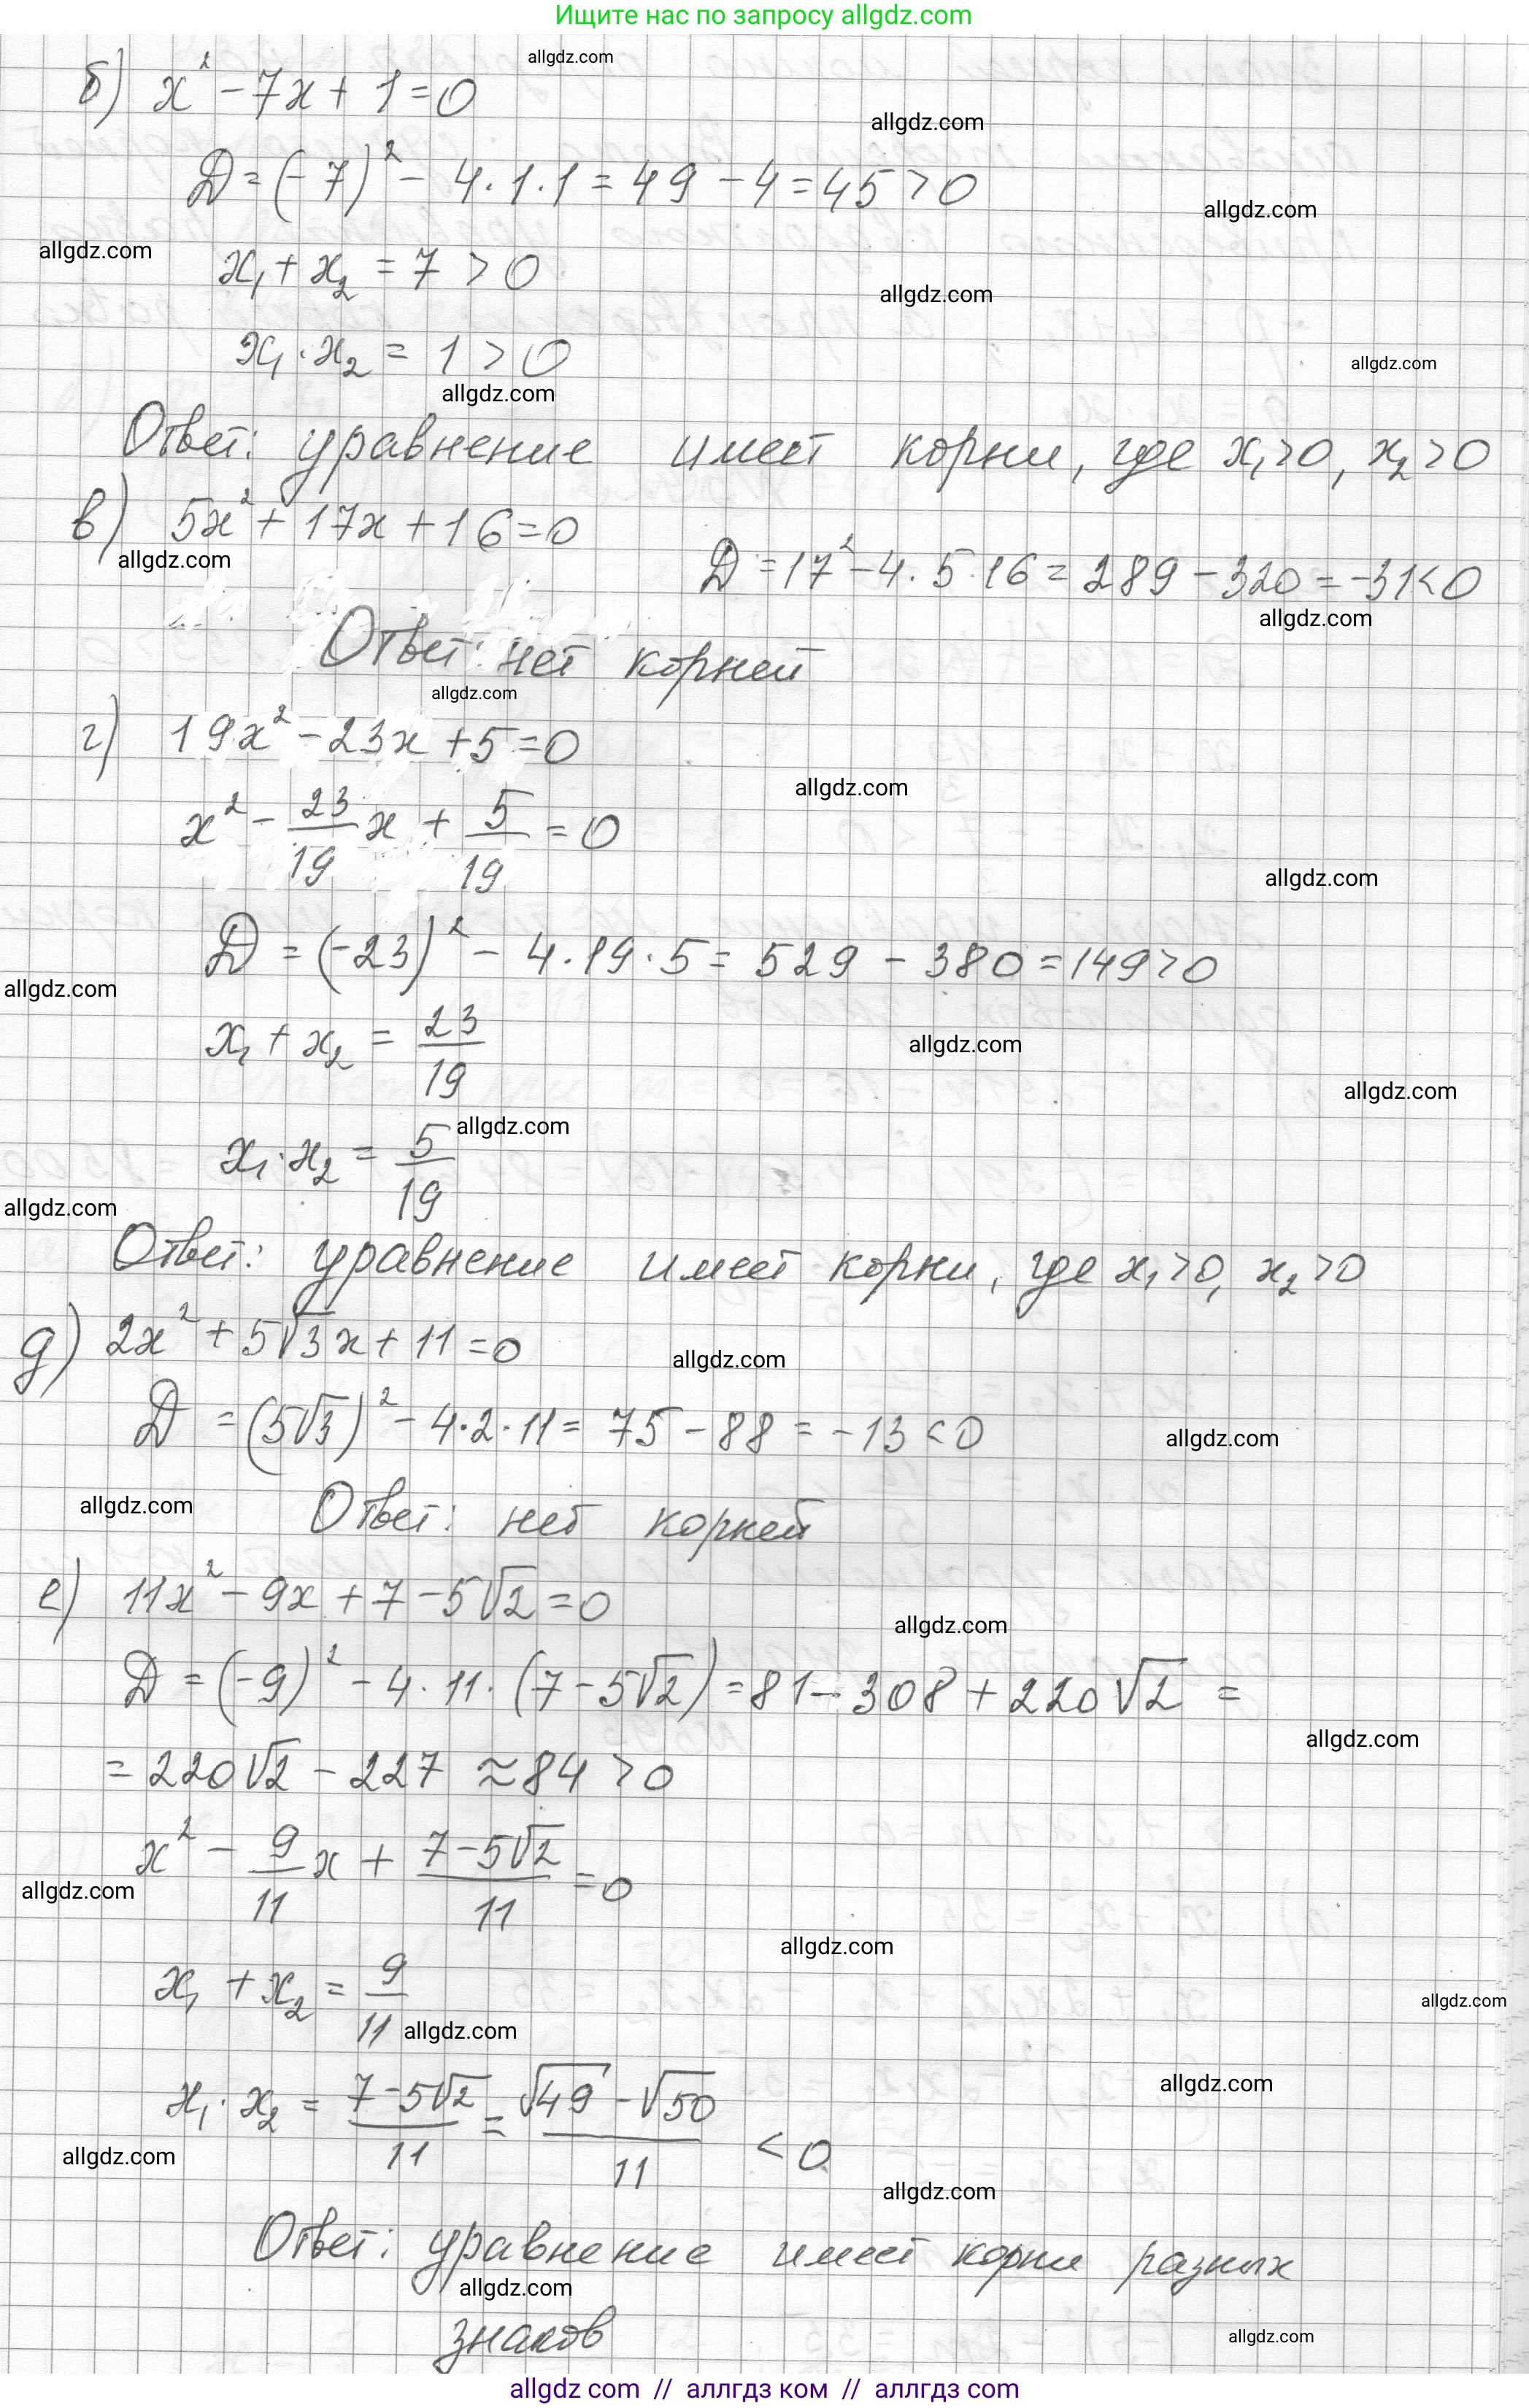 Ищите нас по запросу allgdz.com
allgdz.com
б) x² - 7x + 1 = 0
allgdz.com
D = (-7)² - 4·1·1 = 49 - 4 = 45 > 0
allgdz.com
allgdz.com
x₁ + x₂ = 7 > 0
allgdz.com
x₁·x₂ = 1 > 0
allgdz.com
allgdz.com
Ответ: уравнение имеет корни, где x₁>0, x₂>0
в) 5x² + 17x + 16 = 0
D = 17² - 4·5·16 = 289 - 320 = -31 < 0
allgdz.com
allgdz.com
Ответ: нет корней
allgdz.com
г) 19x² - 23x + 5 = 0
allgdz.com
x² - 23/19 x + 5/19 = 0
allgdz.com
D = (-23)² - 4·19·5 = 529 - 380 = 149 > 0
allgdz.com
x₁ + x₂ = 23/19
allgdz.com
allgdz.com
allgdz.com
x₁·x₂ = 5/19
allgdz.com
Ответ: уравнение имеет корни, где x₁>0, x₂>0
д) 2x² + 5√3x + 11 = 0
allgdz.com
D = (5√3)² - 4·2·11 = 75 - 88 = -13 < 0
allgdz.com
allgdz.com
Ответ: нет корней
е) 11x² - 9x + 7 - 5√2 = 0
allgdz.com
D = (-9)² - 4·11·(7 - 5√2) = 81 - 308 + 220√2 =
allgdz.com
= 220√2 - 227 ≈ 84 > 0
x² - 9/11 x + (7 - 5√2)/11 = 0
allgdz.com
allgdz.com
x₁ + x₂ = 9/11
allgdz.com
allgdz.com
allgdz.com
x₁·x₂ = (7 - 5√2)/11 = (√49 - √50)/11 < 0
allgdz.com
allgdz.com
Ответ: уравнение имеет корни разных
allgdz.com
знаков
allgdz.com
allgdz com // аллгдз ком // аллгдз com